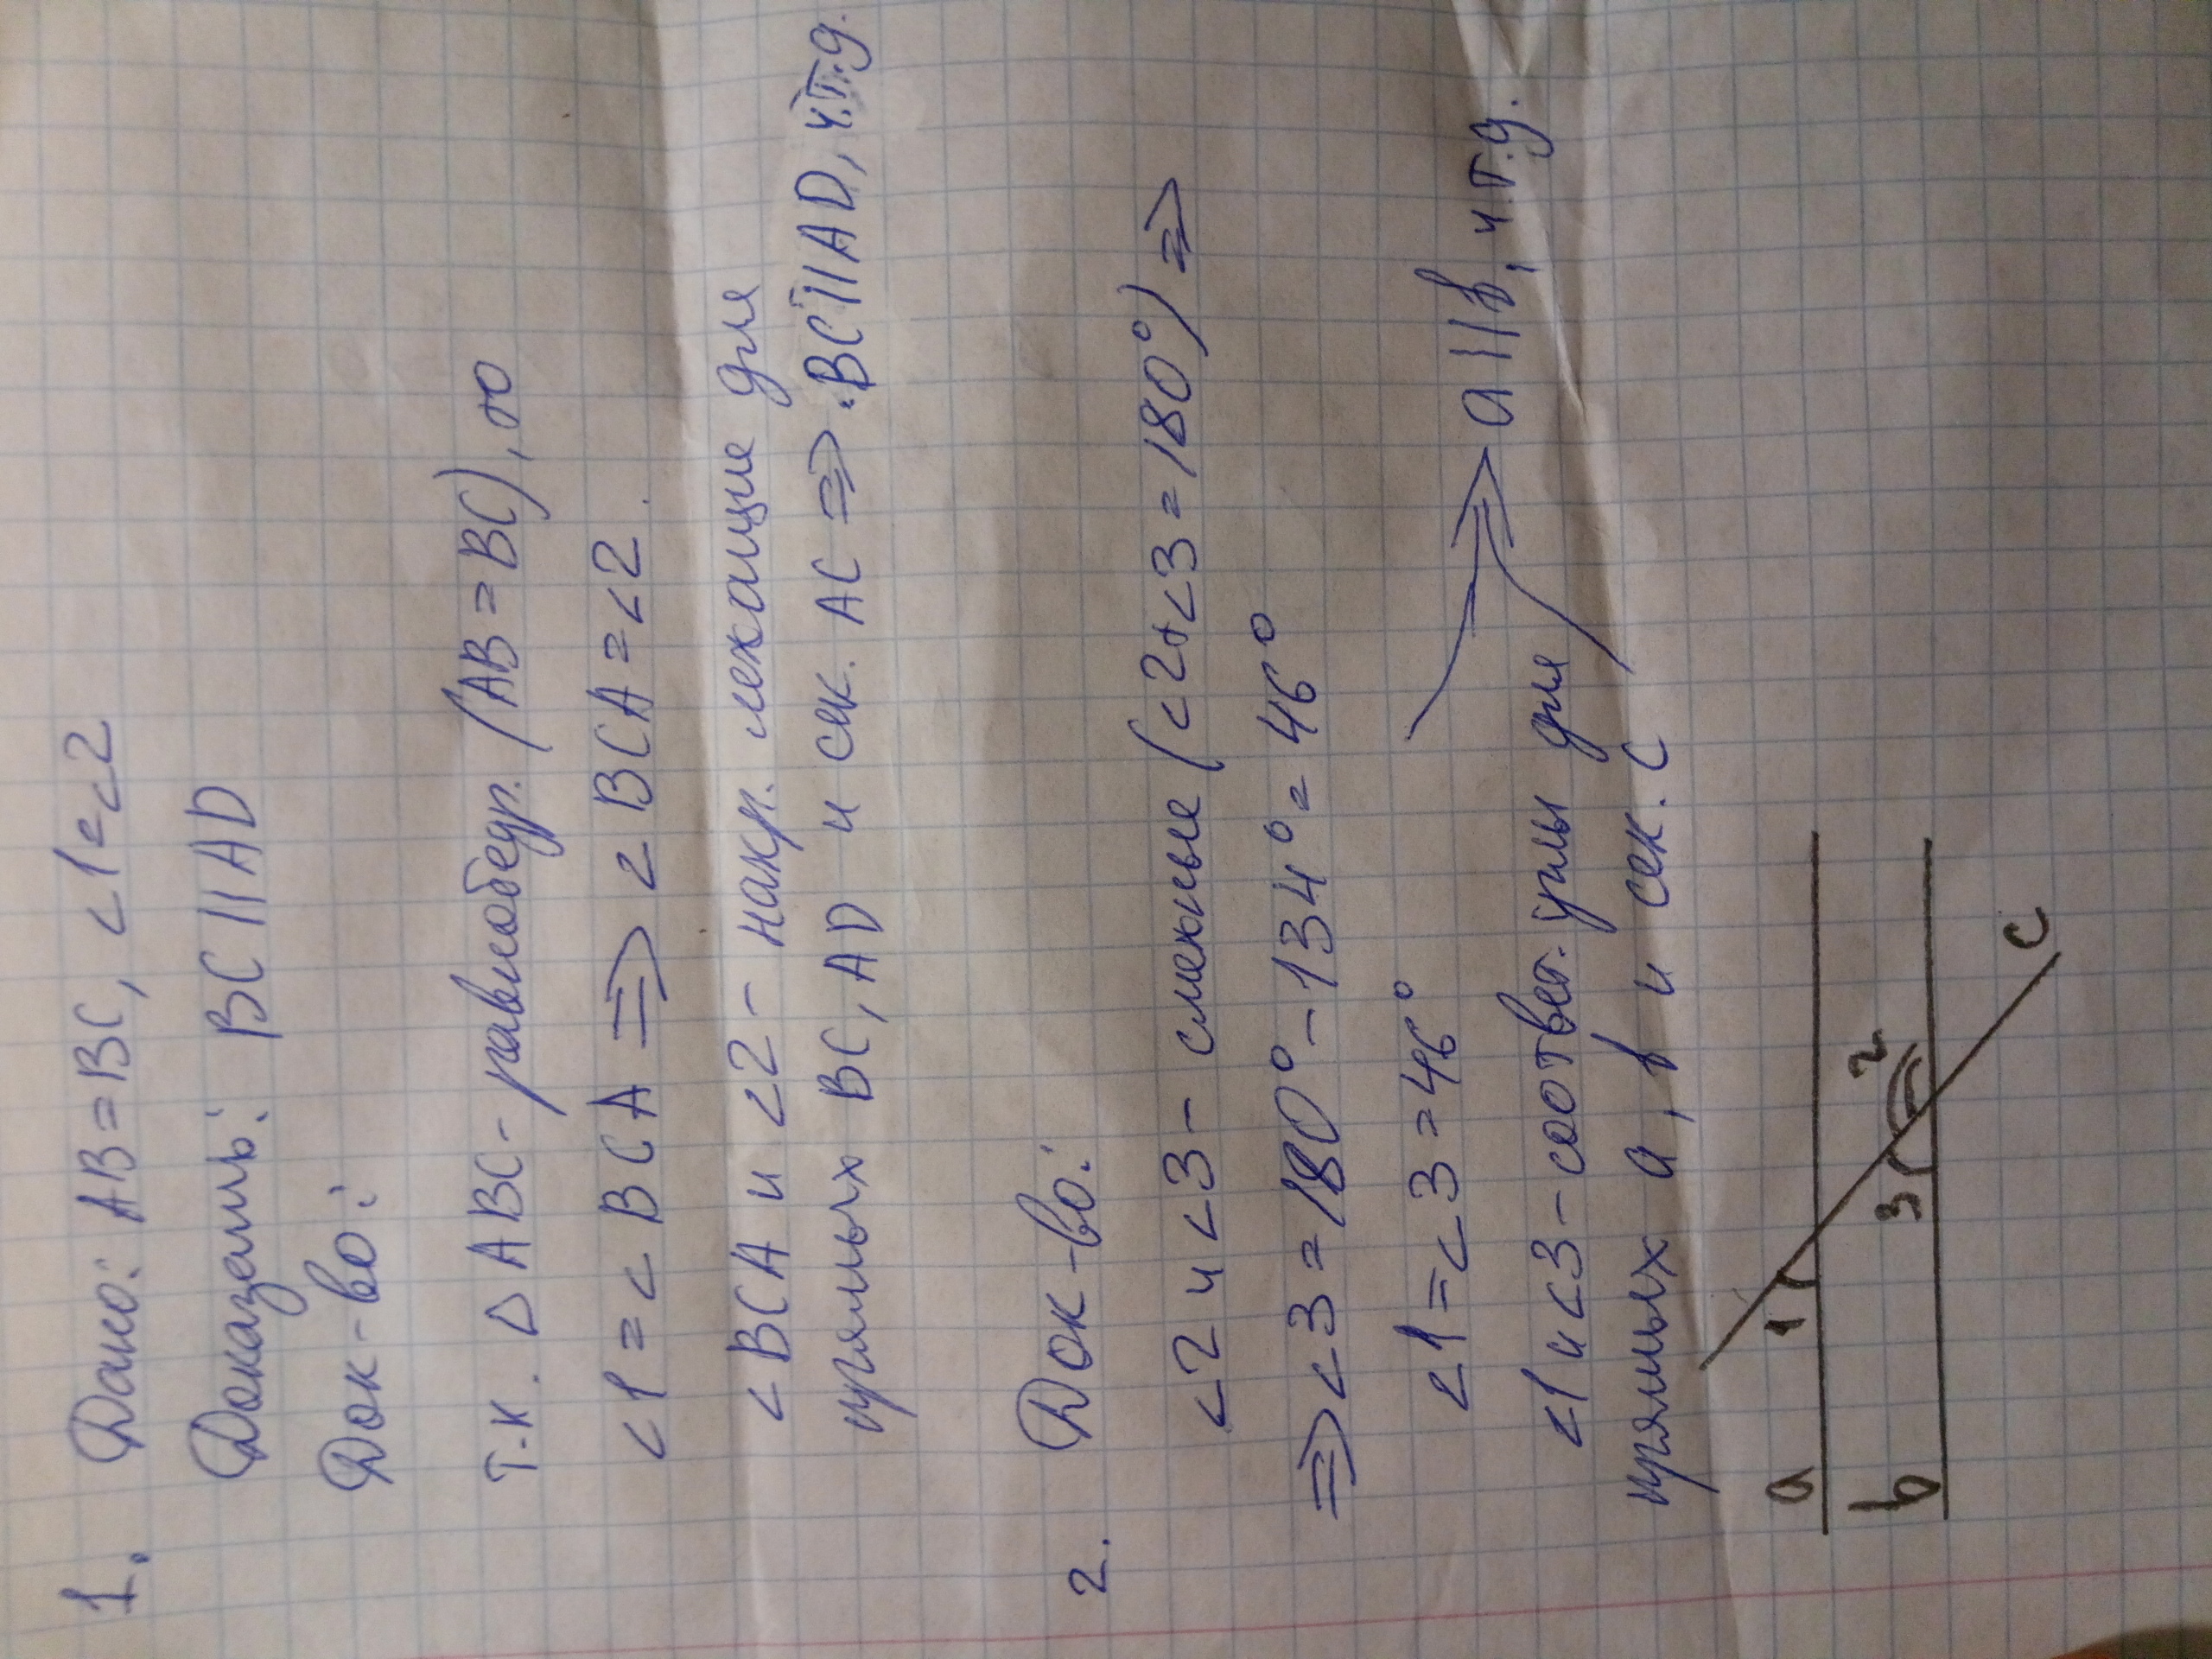 1. Дано: AB = BC, <1=<2
Доказать: BC || AD
Док-во:
Т.к. △ ABC - равнобедр. (AB = BC), то
<1 = < BCA => < BCA = <2.
< BCA и <2 - накр. лежащие для
прямых BC, AD и сек. AC => BC || AD, ч.т.д.
2. Док-во:
<2 и <3 - смежные (<2+<3 = 180°) =>
=> <3 = 180° - 134° = 46°
<1 = <3 = 46°
<1 и <3 - соответ. углы для
прямых a, b и сек. c
=> a || b, ч.т.д.
a
1
b
3
2
c